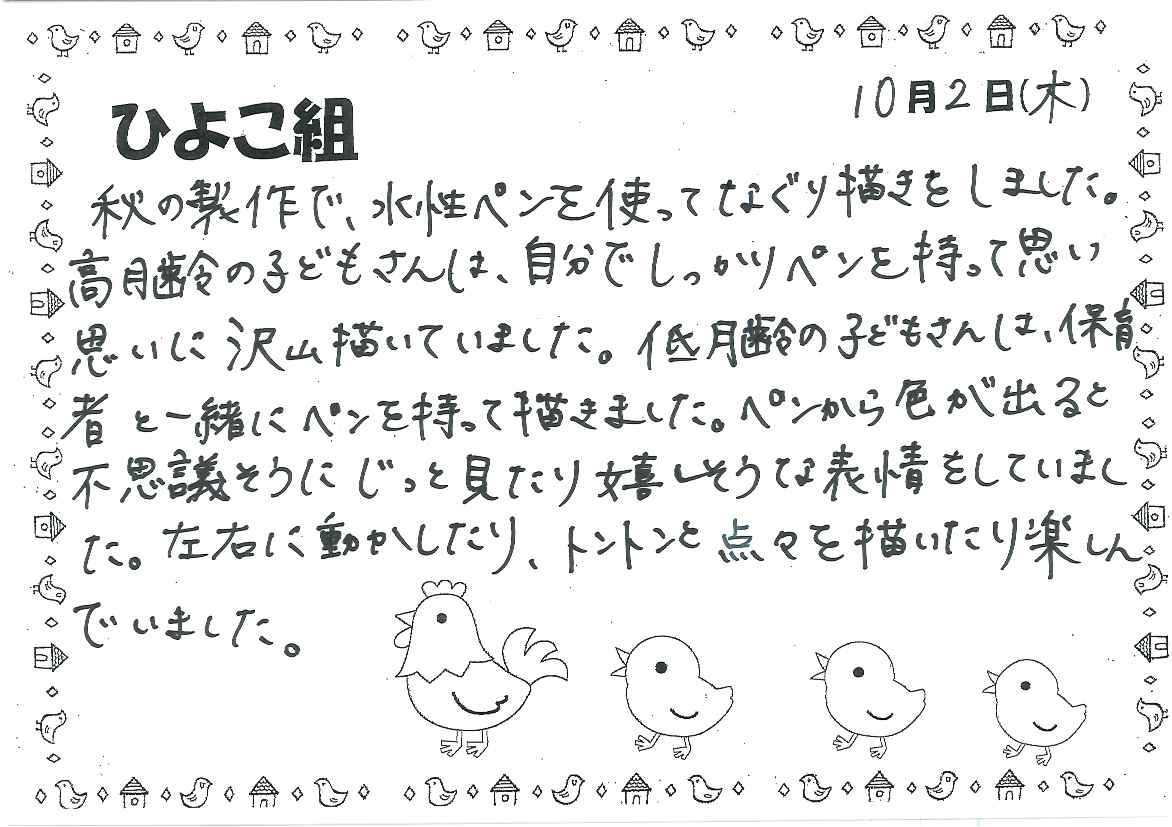 10月2日(木)
ひよこ組
秋の製作で、水性ペンを使ってなぐり描きをしました。
高月齢の子どもさんは、自分でしっかりペンを持って思い
思いに沢山描いていました。低月齢の子どもさんは、保育
者と一緒にペンを持って描きました。ペンから色が出ると
不思議そうにじっと見たり嬉しそうな表情をしていまし
た。左右に動かしたり、トントンと点々を描いたり楽しん
でいました。